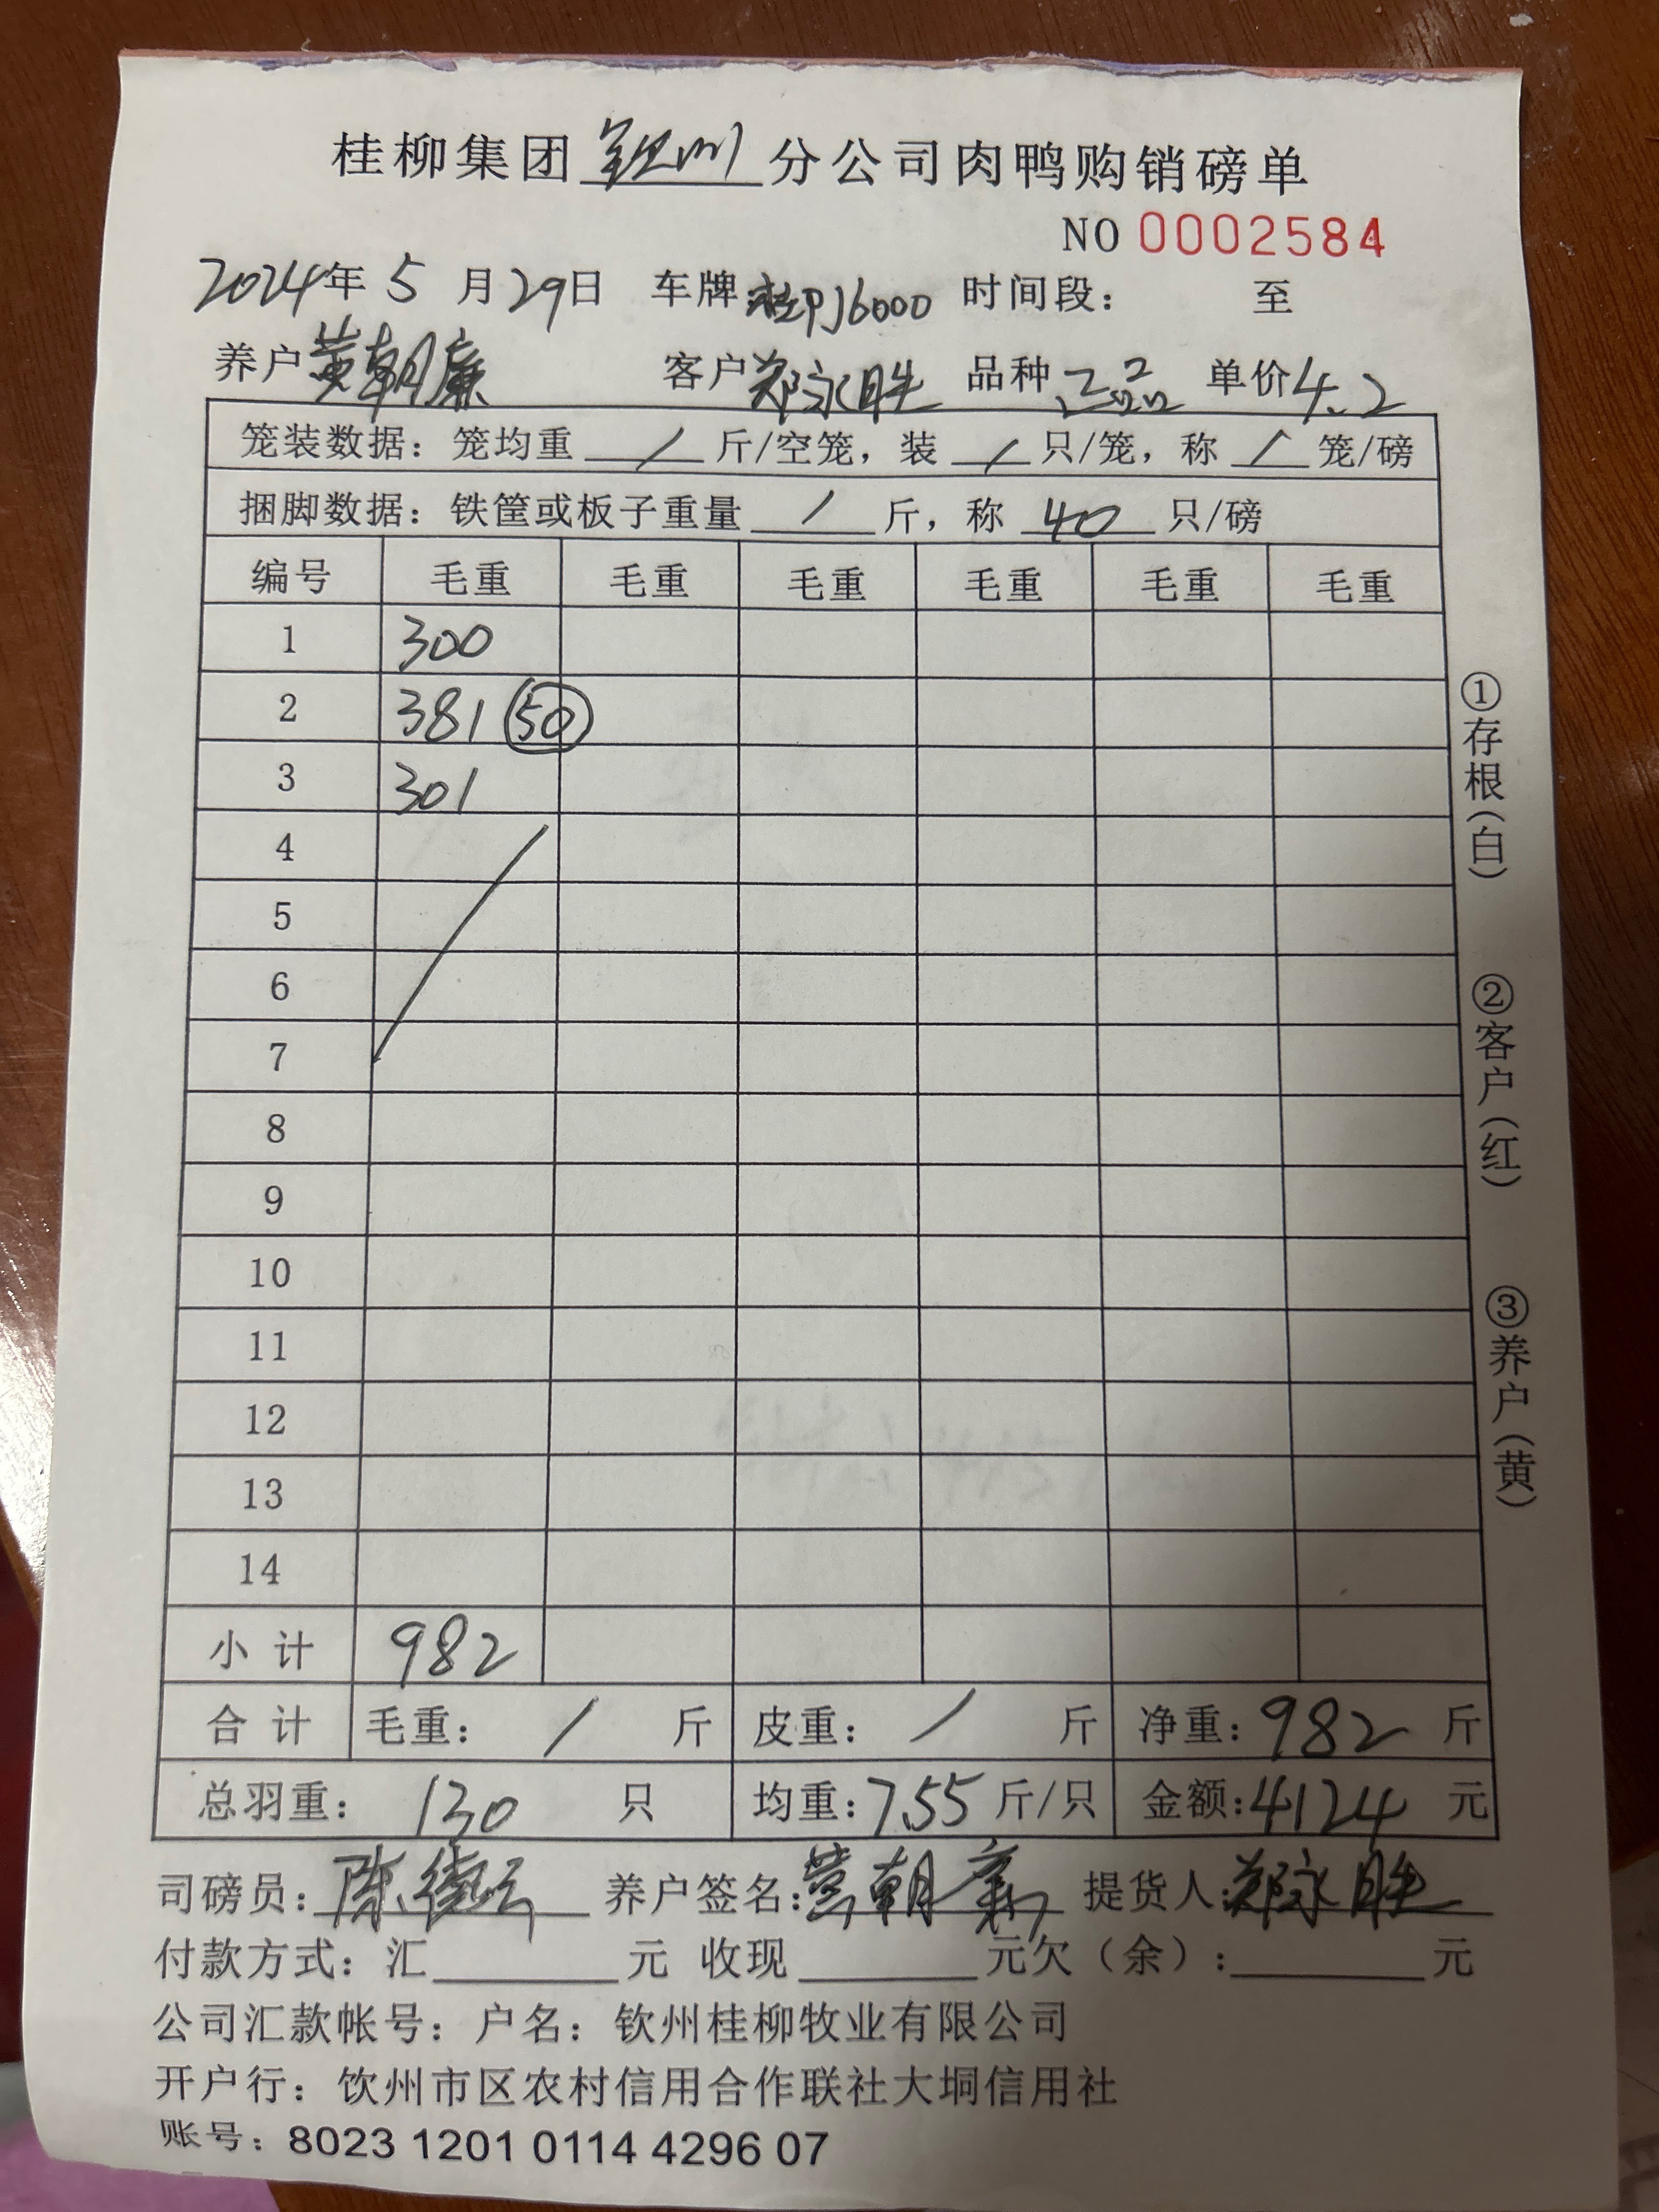 桂柳集团钦州分公司肉鸭购销磅单
NO 0002584
2024年 5 月 29日 车牌:桂PJ6000 时间段: 至
养户 黄朝廉 客户 郑永胜 品种 正品 单价 4.2
笼装数据: 笼均重 / 斤/空笼, 装 / 只/笼, 称 / 笼/磅
捆脚数据: 铁筐或板子重量 / 斤, 称 40 只/磅
编号 毛重 毛重 毛重 毛重 毛重 毛重
1 300
2 381 (50)
3 301
4
5
6
7
8
9
10
11
12
13
14
小 计 982
合 计 毛重: / 斤 皮重: / 斤 净重: 982 斤
总羽重: 130 只 均重: 7.55 斤/只 金额: 4124 元
司磅员: 陈 养户签名: 黄朝廉 提货人: 郑永胜
付款方式: 汇 元 收现 元欠(余): 元
公司汇款帐号: 户名: 钦州桂柳牧业有限公司
开户行: 钦州市区农村信用合作联社大垌信用社
账号: 8023 1201 0114 4296 07
①存根(白)
②客户(红)
③养户(黄)